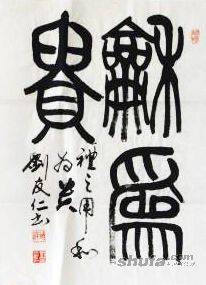 龢為
貴
禮之用和
為美
劉友仁書
shufa.com